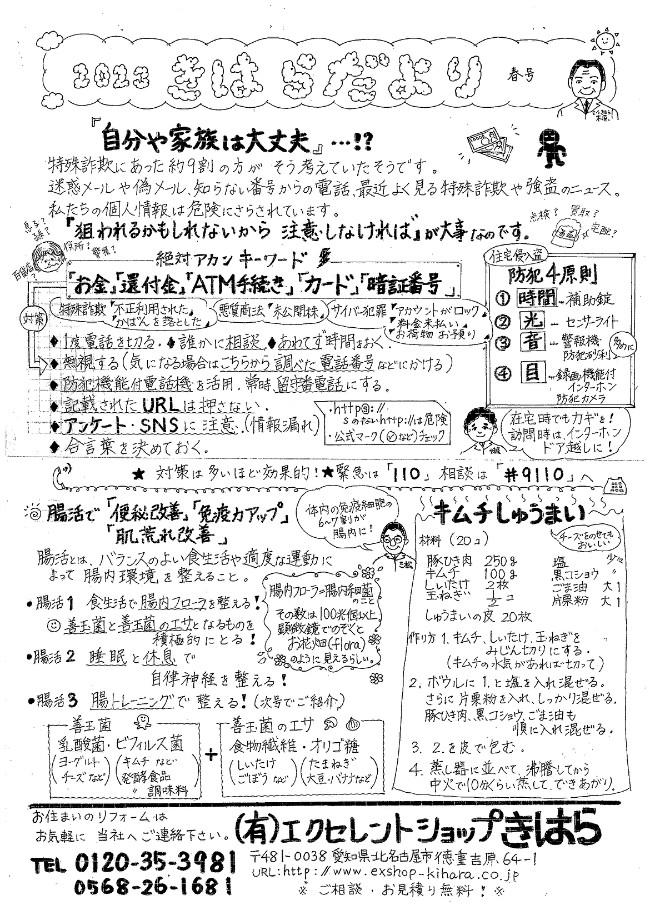 2023 きはらだより 春号
『自分や家族は大丈夫』…!?
特殊詐欺にあった約9割の方が そう考えていたそうです。
迷惑メールや偽メール、知らない番号からの電話、最近よく見る特殊詐欺や強盗のニュース。
私たちの個人情報は危険にさらされています。
『狙われるかもしれないから 注意しなければ』が大事なのです。
点検? 買取?
宅配?
役所? 警察?
百貨店?
絶対アカンキーワード
「お金」「還付金」「ATM手続き」「カード」「暗証番号」
特殊詐欺
不正利用された
かばんを落とした
悪質商法
未公開株
サイバー犯罪
アカウントがロック
料金未払い
お荷物お預り
対策
◆1度電話を切る。◆誰かに相談。◆あわてず時間をおく。
◆無視する(気になる場合はこちらから調べた電話番号などにかける)
◆防犯機能付電話機を活用。常時、留守番電話にする。
◆記載されたURLは押さない。
◆アンケート・SNSに注意。(情報漏れ)
◆合言葉を決めておく。
・http@://
sのないhttp://は危険
・公式マーク(✓など)チェック
住宅侵入盗
防犯4原則
①時間―補助錠
②光―センサーライト
③音―警報機
防犯砂利
④目―録画機能付
インターホン
防犯カメラ
在宅時でもカギを!
訪問時は、インターホン
ドア越しに!
★ 対策は多いほど効果的!★緊急は「110」相談は「#9110」へ
腸活で「便秘改善」「免疫力アップ」
「肌荒れ改善」
体内の免疫細胞の
6~7割が
腸内に!
腸活とは、バランスのよい食生活や適度な運動に
よって腸内環境を整えること。
・腸活1 食生活で腸内フローラを整える!
善玉菌と善玉菌のエサとなるものを
積極的にとる!
・腸活2 睡眠と休息で
自律神経を整える!
・腸活3 腸トレーニングで整える!(次号でご紹介)
腸内フローラ=腸内細菌
のこと
その数は100兆個以上
顕微鏡でのぞくと
お花畑(Flora)
のように見えるらしい。
善玉菌
乳酸菌・ビフィルス菌
(ヨーグルト
チーズなど)
(キムチなど
発酵食品
調味料)
+
善玉菌のエサ
食物繊維・オリゴ糖
(しいたけ
ごぼうなど)
(たまねぎ
大豆・バナナなど)
キムチしゅうまい
チーズをのせても
おいしい
材料(20コ)
豚ひき肉 250g
キムチ 100g
しいたけ 2枚
玉ねぎ 1/2コ
しゅうまいの皮 20枚
塩 少々
黒コショウ
ごま油 大1
片栗粉 大1
作り方 1. キムチ、しいたけ、玉ねぎを
みじん切りにする。
(キムチの水気があれば切って)
2. ボウルに1.と塩を入れ混ぜる。
さらに片栗粉を入れ、しっかり混ぜる。
豚ひき肉、黒コショウ、ごま油も
順に入れ混ぜる。
3. 2.を皮で包む。
4. 蒸し器に並べて、沸騰してから
中火で10分くらい蒸して、できあがり。
お住まいのリフォームは
お気軽に 当社へご連絡下さい。
(有)エクセレントショップきはら
TEL 0120-35-3981
0568-26-1681
〒481-0038 愛知県北名古屋市徳重吉原、64-1
URL:http://www.exshop-kihara.co.jp
※ご相談・お見積り無料!※